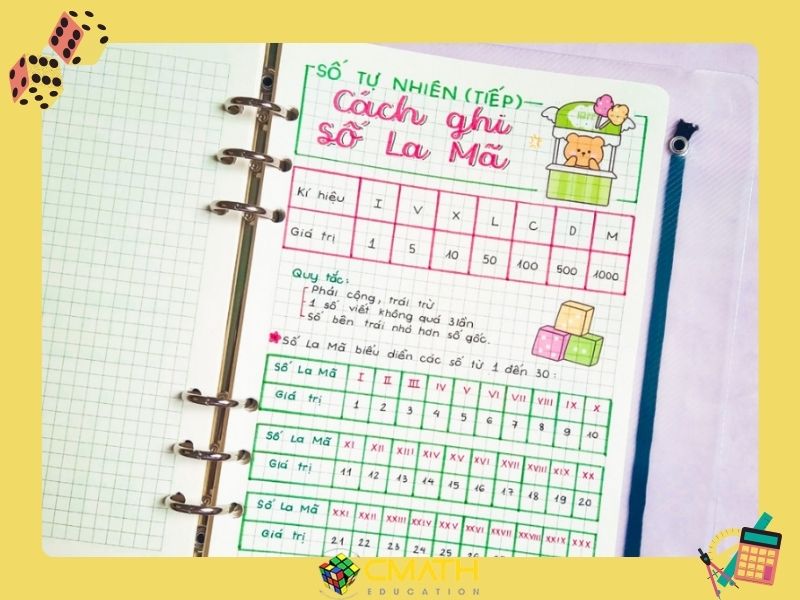 SỐ TỰ NHIÊN (TIẾP)
Cách ghi
Số La Mã
Kí hiệu I V X L C D M
Giá trị 1 5 10 50 100 500 1000
Quy tắc:
Phải cộng, trái trừ
1 số viết không quá 3 lần
Số bên trái nhỏ hơn số gốc.
Số La Mã biểu diễn các số từ 1 đến 30:
Số La Mã I II III IV V VI VII VIII IX X
Giá trị 1 2 3 4 5 6 7 8 9 10
Số La Mã XI XII XIII XIV XV XVI XVII XVIII XIX XX
Giá trị 11 12 13 14 15 16 17 18 19 20
Số La Mã XXI XXII XXIII XXIV XXV XXVI XXVII XXVIII XXIX XXX
Giá trị 21 22 23 24 25 26
CMATH
EDUCATION